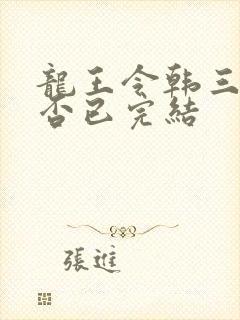 龍王令韩三
否已完結
張進